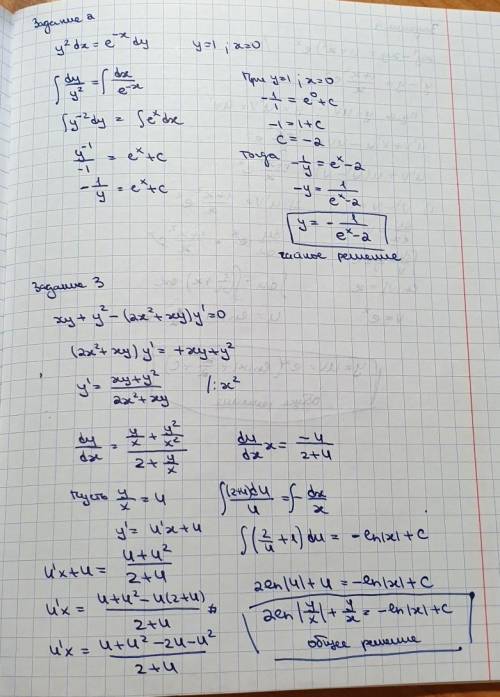 Задание 2
y² dx = e^{-x} dy    y=1 ; x=0
∫ dy/y² = ∫ dx/e^{-x}
∫ y^{-2} dy = ∫ e^x dx
y^{-1}/-1 = e^x + c
-1/y = e^x + c
При y=1, x=0
-1/1 = e^0 + c
-1 = 1 + c
c = -2
тогда -1/y = e^x - 2
-y = 1/(e^x - 2)
y = - 1/(e^x - 2)
частное решение
Задание 3
xy + y² - (2x² + xy) y' = 0
(2x² + xy) y' = +xy + y²
y' = (xy + y²)/(2x² + xy)    /: x²
dy/dx = (y/x + y²/x²)/(2 + y/x)
Пусть y/x = u
y' = u'x + u
u'x + u = (u + u²)/(2 + u)
u'x = (u + u² - u(2+u))/(2 + u)
u'x = (u + u² - 2u - u²)/(2 + u)
du/dx x = -u/(2 + u)
∫ (2+u)du/u = ∫ - dx/x
∫ (2/u + 1) du = -ln|x| + c
2ln|u| + u = -ln|x| + c
2ln|y/x| + y/x = -ln|x| + c
общее решение